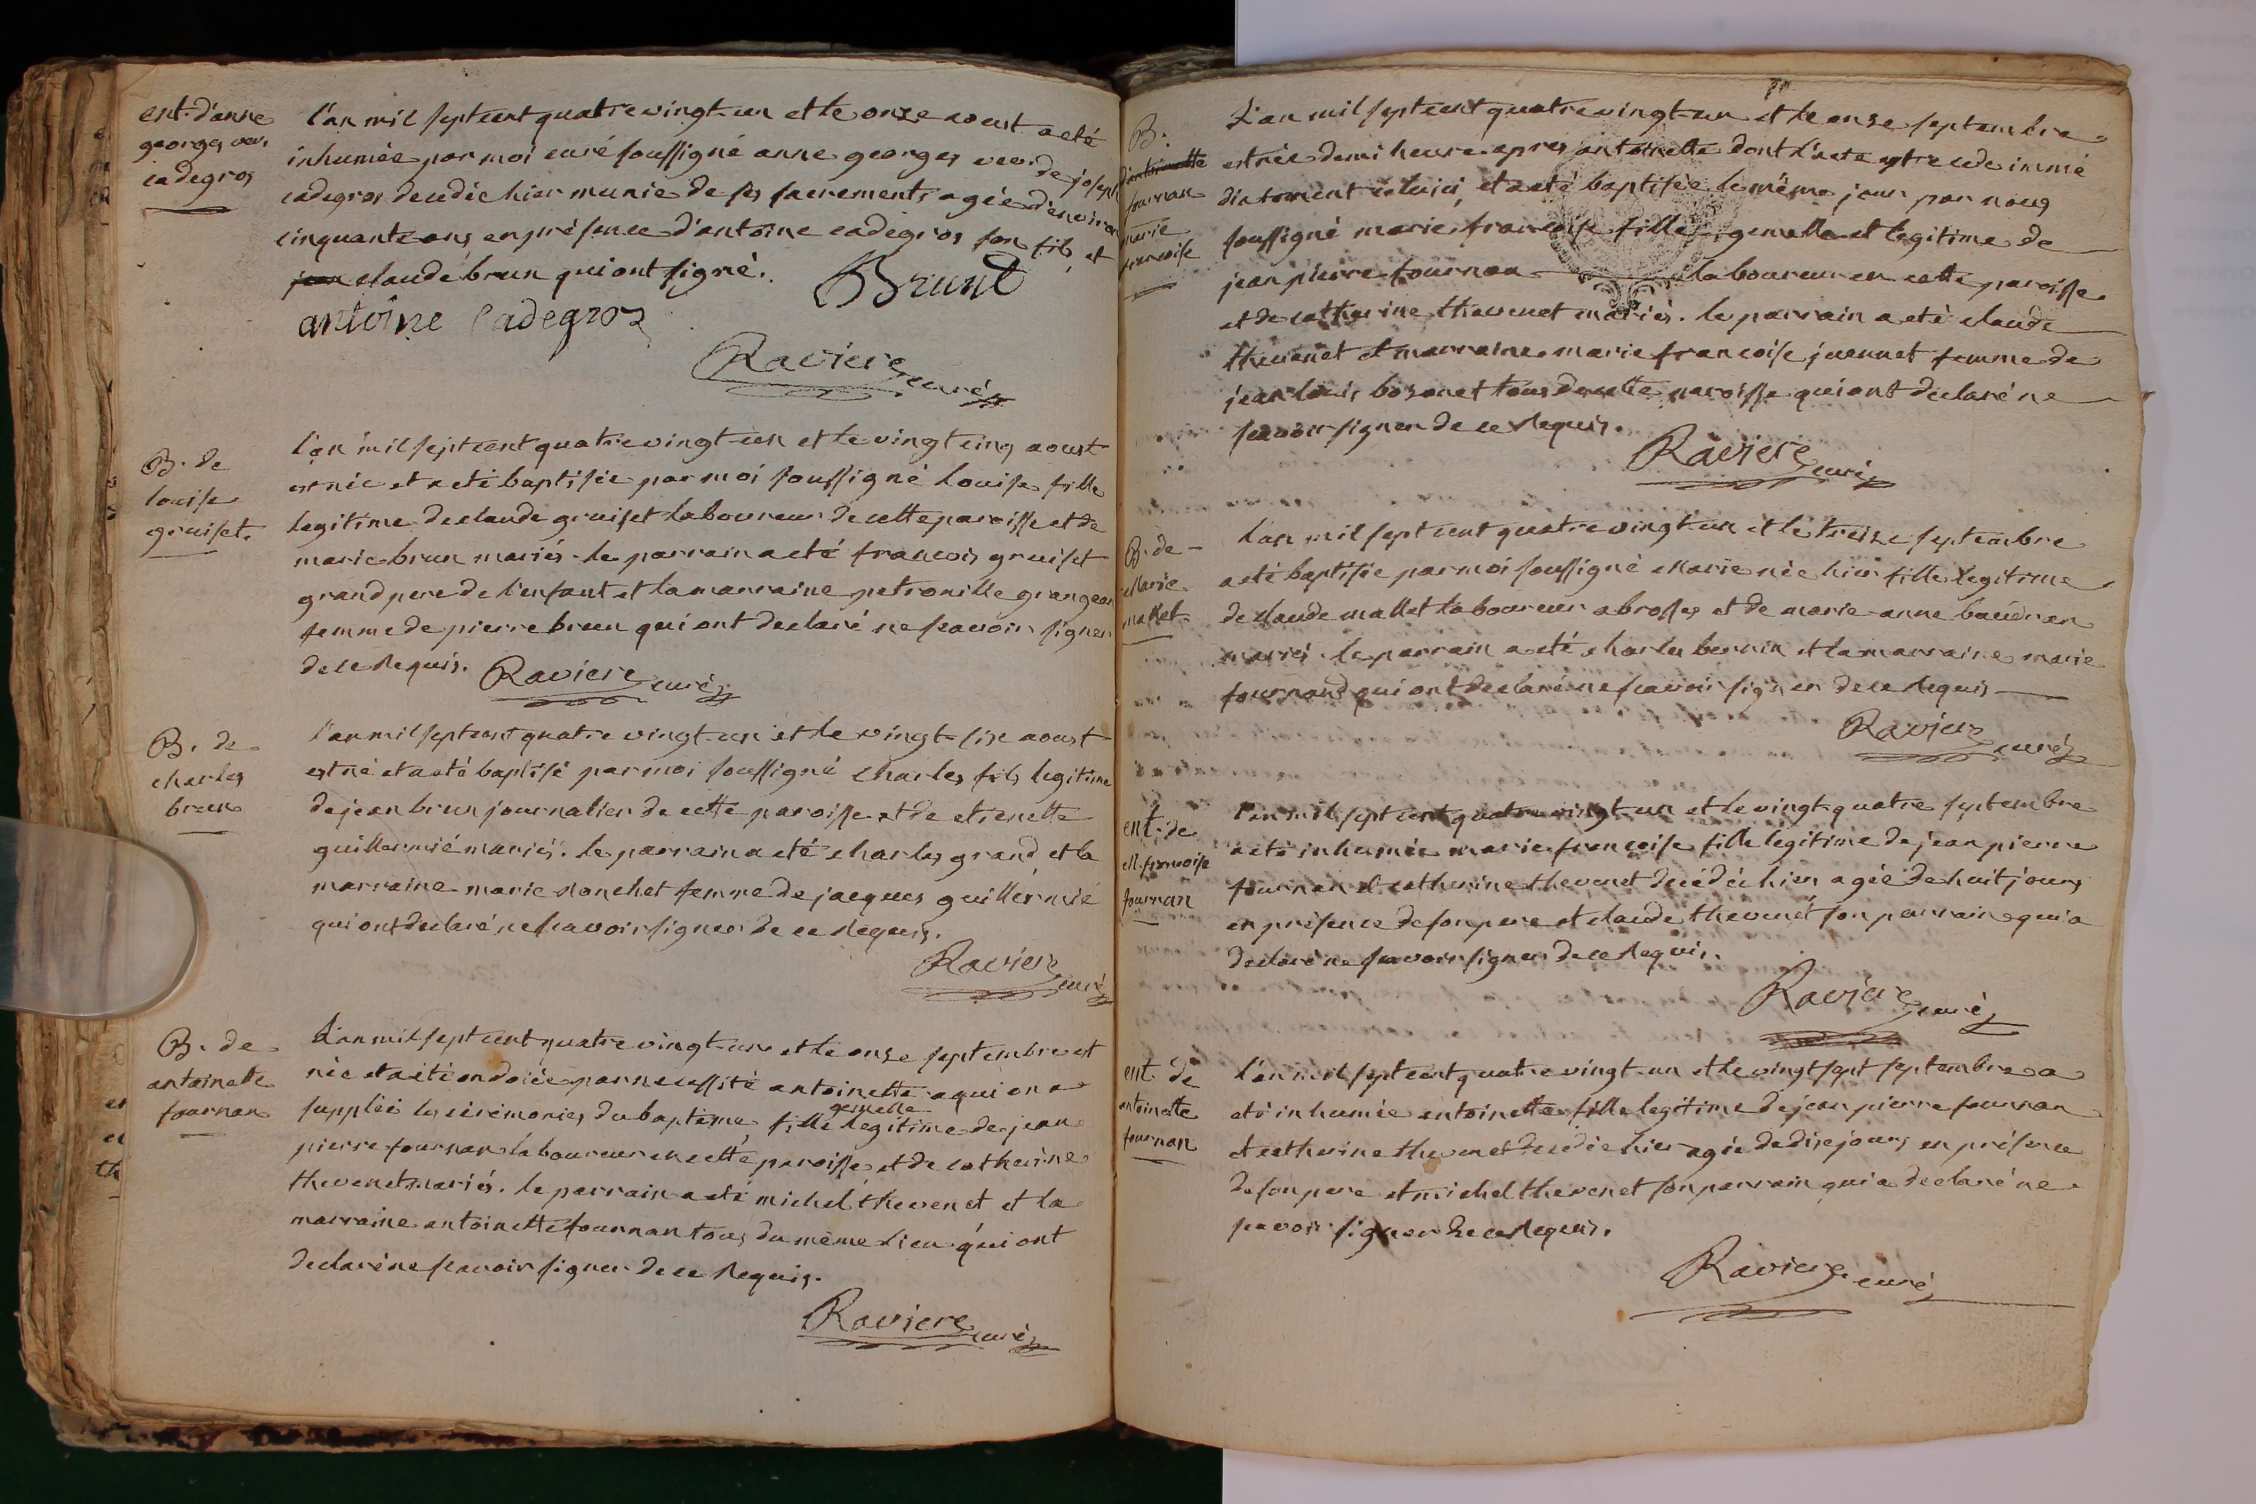 ent. d'anne
georges veu.
cadegros
l'an mil sept cent quatre vingt-un et le onze aoust a eté
inhumée par moi curé soussigné anne georges veu. de joseph
cadegros decedée hier munie de ses sacrements agée d'environ
cinquante ans en présence d'antoine cadegros son fils et
claude brun qui ont signé.
Brunt
antoine Cadegros
Raviere curé
B. de
louise
gruiset.
l'an mil sept cent quatre vingt-un et le vingt cinq aoust
est née et a eté baptisée par moi soussigné Louise fille
legitime de claude gruiset laboureur de cette paroisse et de
marie brun mariés. le parrain a eté francois gruiset
grand pere de l'enfant et la marraine petronille grangean
femme de pierre brun qui ont declaré ne scavoir signer
de ce requis.
Raviere curé
B. de
charles
brun
l'an mil sept cent quatre vingt-un et le vingt-six aoust
est né et a eté baptisé par moi soussigné Charles fils legitime
de jean brun journalier de cette paroisse et de etienette
guillermié mariés. le parrain a eté charles grand et la
marraine marie nonchet femme de jacques guillermié
qui ont declaré ne scavoir signer de ce requis.
Raviere curé
B. de
antoinette
fournan
L'an mil sept cent quatre vingt-un et le onze septembre est
née et a eté ondoiée par necessité antoinette a qui on a
supplée les cérémonies du baptème, fille gemelle legitime de jean
pierre fournan laboureur en cette paroisse et de catherine
thevenet mariés. le parrain a eté michel thevenet et la
marraine antoinette fournan tous du mème lieu qui ont
declaré ne scavoir signer de ce requis.
Raviere curé
B.
d'antoinette
fournan
marie
francoise
L'an mil sept cent quatre vingt-un et le onze septembre
est née demi heure apres antoinette dont l'acte precede immé
diatement celuici, et a eté baptisée le même jour par nous
soussigné marie francoise fille gemelle et legitime de
jean pierre fournan laboureur en cette paroisse
et de catherine thevenet mariés. le parrain a eté claude
thevenet et marraine marie francoise juennet femme de
jean louis bozonet tous de cette paroisse qui ont declaré ne
scavoir signer de ce requis.
Raviere curé
B. de
Marie
mallet
l'an mil sept cent quatre vingt-un et le treize septembre
a eté baptisée par moi soussigné Marie née hier fille legitime
de claude mallet laboureur a brosses et de marie-anne
mariés. le parrain a eté charles bernin et la marraine marie
fournand qui ont declaré ne scavoir signer de ce requis
Raviere curé
ent. de
M. francoise
fournan
l'an mil sept cent quatre vingt-un et le vingt-quatre septembre
a eté inhumée marie francoise fille legitime de jean pierre
fournan et catherine thevenet decédée hier agée de huit jours
en présence de son pere et claude thevenet son parrain qui a
declaré ne scavoir signer de ce requis.
Raviere curé
ent. de
antoinette
fournan
l'an mil sept cent quatre vingt-un et le vingt sept septembre a
eté inhumée antoinette fille legitime de jean pierre fournan
et catherine thevenet decedée hier agée de dix jours en présence
de son pere et michel thevenet son parrain qui a declaré ne
scavoir signer de ce requis.
Raviere curé